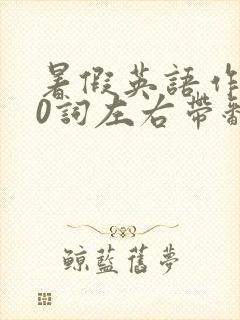 暑假英語作
0詞左右帶翻
鯨藍舊夢